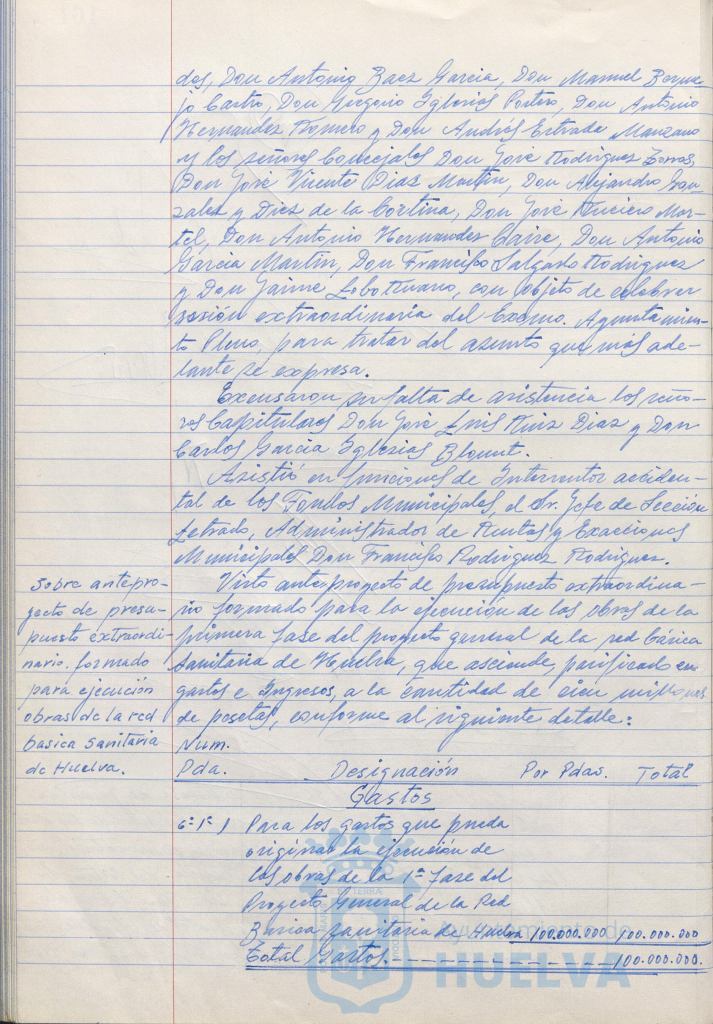 dos, Don Antonio Baez Garcia, Don Manuel Berme-
jo Castro, Don Gregorio Iglesias Portero, Don Antonio
Hernandez Romero y Don Andrés Estrada Manzano
y los señores Concejales Don José Rodriguez Torres,
Don José Vicente Diaz Martin, Don Alejandro Gon-
zalez y Diez de la Cortina, Don José Mar-
tel, Don Antonio Hernandez Caire, Don Antonio
Garcia Martin, Don Francisco Salgado Rodriguez
y Don Jaime Lobo Ruano, con objeto de celebrar
sesión extraordinaria del Excmo. Ayuntamien-
to Pleno para tratar del asunto que más ade-
lante se expresa.
Excusaron su falta de asistencia los seño-
res Capitulares Don José Luis Ruiz Diaz y Don
Carlos Garcia Iglesias Blount.
Asistió en funciones de Interventor acciden-
tal de los Fondos Municipales, el Sr. Jefe de Sección
Letrado, Administrador de Rentas y Exacciones
Municipales Don Francisco Rodriguez Rodriguez.
Sobre antepro-
yecto de presu-
puesto extraordi-
nario formado
para ejecución
obras de la red
basica sanitaria
de Huelva.
Visto anteproyecto de presupuesto extraordina-
rio formado para la ejecución de las obras de la
primera fase del proyecto general de la red básica
sanitaria de Huelva, que asciende, parificado en
gastos e Ingresos, a la cantidad de cien millones
de pesetas, conforme al siguiente detalle:
Num.
Pda. Designación Por Pdas. Total
Gastos
6º 1º 1 Para los gastos que pueda
originar la ejecución de
las obras de la 1ª fase del
Proyecto General de la Red
Basica sanitaria de Huelva 100.000.000 100.000.000
Total Gastos - - - - - - - - - - 100.000.000.
Ayuntamiento de
HUELVA